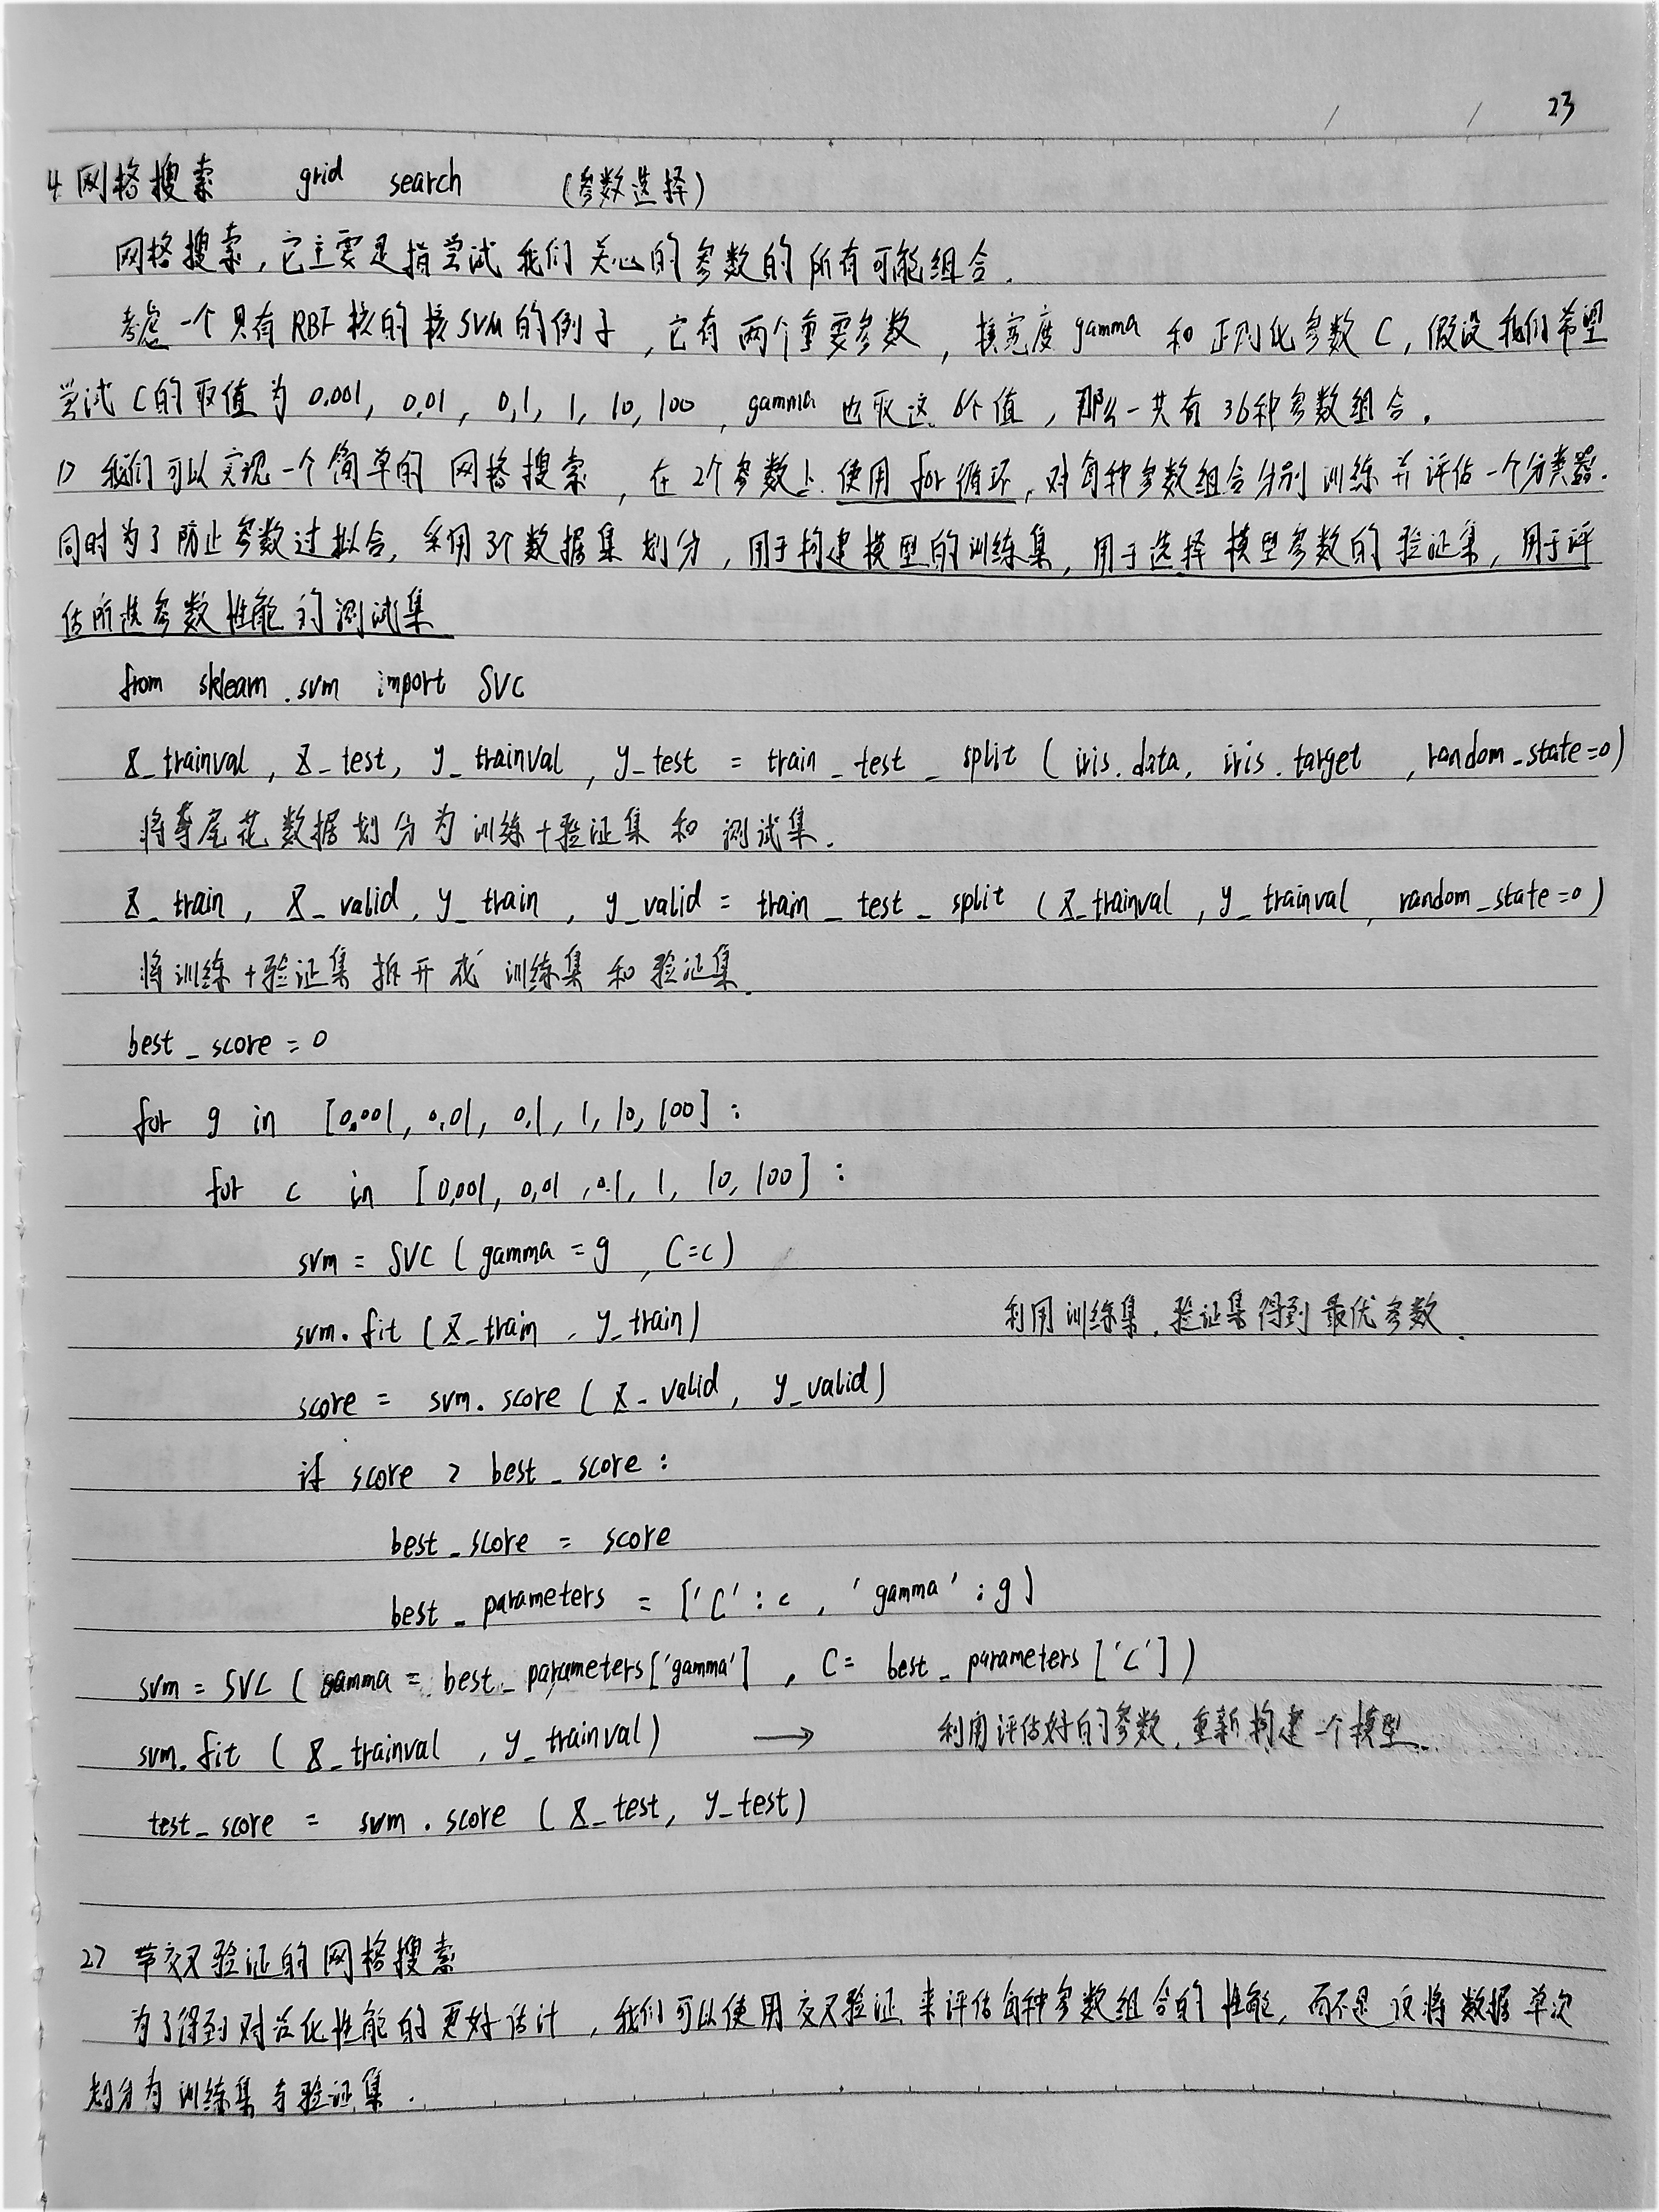 23
4. 网格搜索 grid search (参数选择)
网格搜索,它主要是指尝试我们关心的参数的所有可能组合.
考虑一个具有RBF核的核SVM的例子,它有两个重要参数,核宽度gamma和正则化参数C,假设我们希望
尝试C的取值为0.001, 0.01, 0.1, 1, 10, 100, gamma也取这6个值,那么一共有36种参数组合.
1> 我们可以实现一个简单的网格搜索,在2个参数上使用for循环,对每种参数组合分别训练并评估一个分类器.
同时为了防止参数过拟合,采用3个数据集划分,用于构建模型的训练集,用于选择模型参数的验证集,用于评
估所选参数性能的测试集
from sklearn.svm import SVC
X_trainval, X_test, y_trainval, y_test = train_test_split (iris.data, iris.target, random_state=0)
将鸢尾花数据划分为训练+验证集和测试集.
X_train, X_valid, y_train, y_valid = train_test_split (X_trainval, y_trainval, random_state=0)
将训练+验证集拆开成训练集和验证集.
best_score = 0
for g in [0.001, 0.01, 0.1, 1, 10, 100]:
for c in [0.001, 0.01, 0.1, 1, 10, 100]:
svm = SVC (gamma = g, C=c)
svm.fit (X_train, y_train) 利用训练集,验证集得到最优参数.
score = svm.score (X_valid, y_valid)
if score > best_score:
best_score = score
best_parameters = ['C': c, 'gamma': g]
svm = SVC (gamma = best_parameters['gamma'], C = best_parameters['C'])
svm.fit (X_trainval, y_trainval) → 利用评估好的参数,重新构建一个模型.
test_score = svm.score (X_test, y_test)
2> 带交叉验证的网格搜索
为了得到对泛化性能的更好估计,我们可以使用交叉验证来评估每种参数组合的性能,而不是仅将数据单次
划分为训练集与验证集.